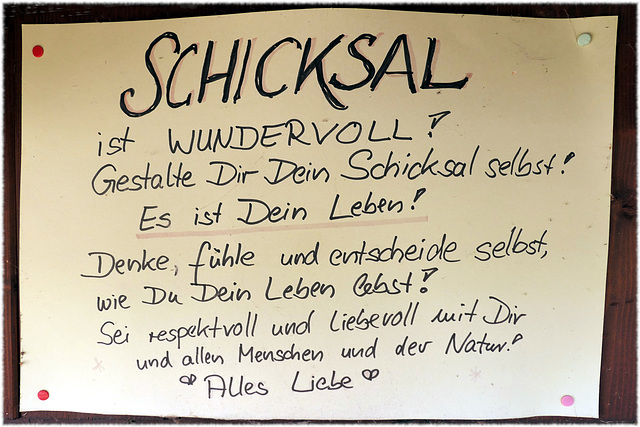 SCHICKSAL
ist WUNDERVOLL!
Gestalte Dir Dein Schicksal selbst!
Es ist Dein Leben!
Denke, fühle und entscheide selbst,
wie Du Dein Leben lebst!
Sei respektvoll und liebevoll mit Dir
und allen Menschen und der Natur!
♡ Alles Liebe ♡